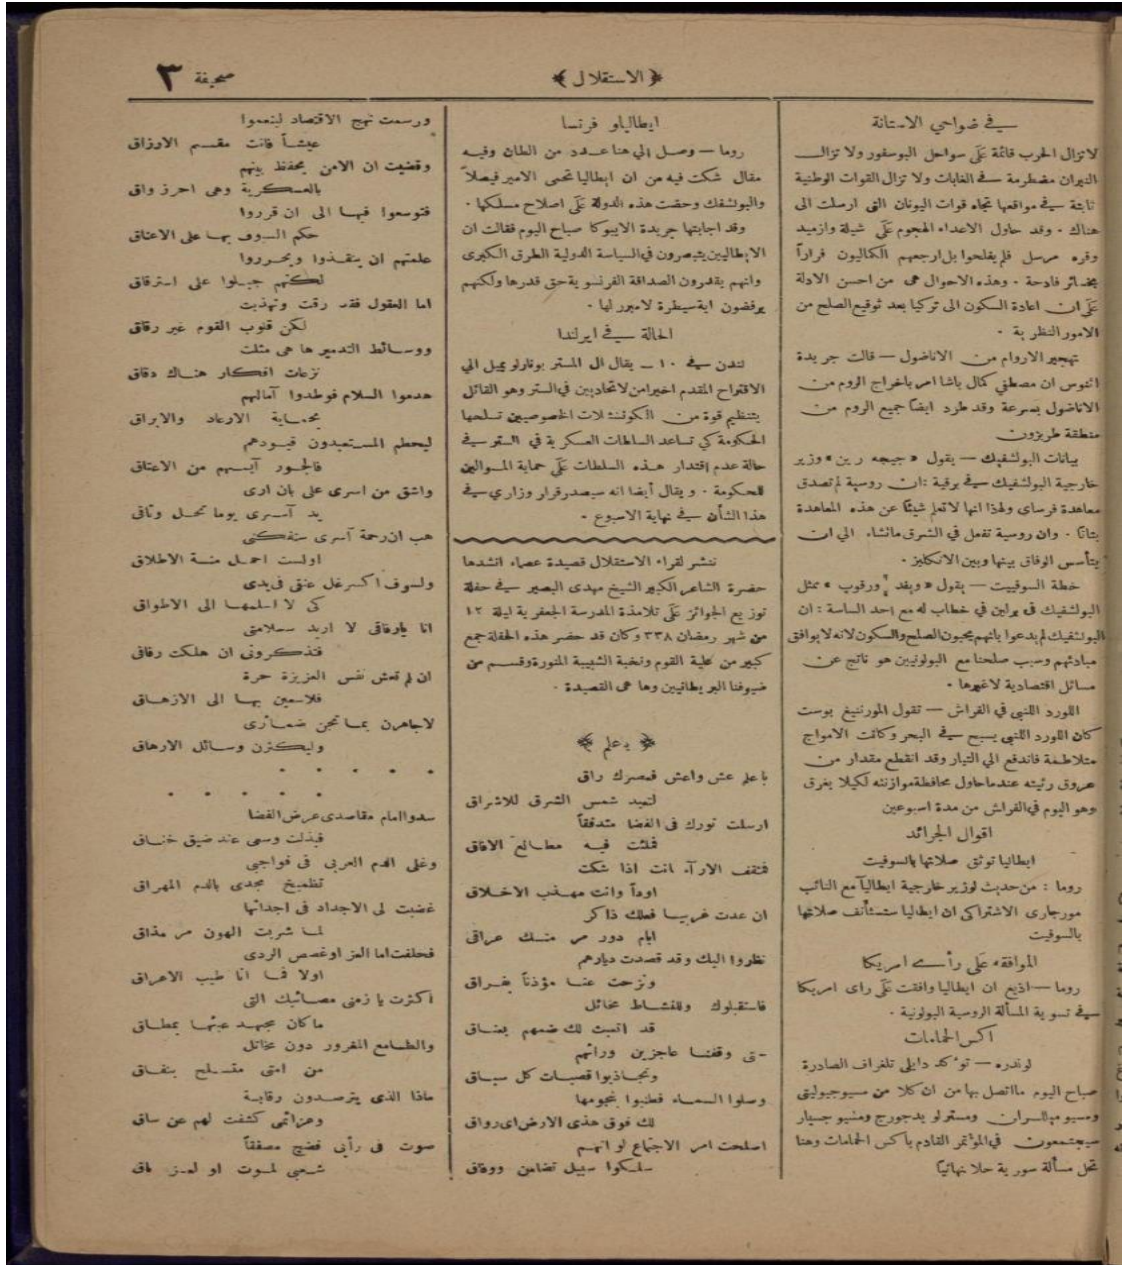 صحيفة ٣
﴿ الاستقلال ﴾
في ضواحي الاستانة
لا تزال الحرب قائمة عَلَى سواحل البوسفور ولا تزال
النيران مضطرمة في الغابات ولا تزال القوات الوطنية
ثابتة في مواقعها تجاه قوات اليونان التى ارسلت الى
هناك . وقد حاول الاعداء الهجوم عَلَى شيلة وازميد
وقره مرسل فلم يفلحوا بل ارجعهم الكماليون فراراً
بخسائر فادحة . وهذه الاحوال هى من احسن الادلة
عَلَى ان اعادة السكون الى تركيا بعد توقيع الصلح من
الامور النظرية .
تهجير الاروام من الاناضول — قالت جريدة
اثنوس ان مصطفي كمال باشا امر باخراج الروم من
الاناضول بسرعة وقد طرد ايضاً جميع الروم من
منطقة طربزون
بيانات البولشفيك — يقول « جيجه رين » وزير
خارجية البولشفيك في برقية : ان روسية لم تصدق
معاهدة فرساى ولهذا انها لا تعلم شيئاً عن هذه المعاهدة
بتاتاً . وان روسية تفعل في الشرق ماتشاء الي ان
يتأسس الوفاق بينها وبين الانكليز .
خطة السوفييت — يقول « ويفد ورقوب » ممثل
البولشفيك فى برلين في خطاب له مع احد الساسة : ان
البولشفيك لم يدعوا بانهم يحبون الصلح والسكون لانه لا يوافق
مبادئهم وسبب صلحنا مع البولونيين هو ناتج عن
مسائل اقتصادية لاغيرها .
اللورد اللنبي في الفراش — تقول المورننيغ بوست
كان اللورد اللنبي يسبح في البحر وكانت الامواج
متلاطمة فاندفع الي التيار وقد انقطع مقدار من
عروق رئيته عندما حاول محافظة موازنته لكيلا يغرق
وهو اليوم في الفراش من مدة اسبوعين
اقوال الجرائد
ايطاليا توثق صلاتها بالسوفيت
روما : من حديث لوزير خارجية ايطاليا مع النائب
مورجارى الاشتراكى ان ايطاليا ستستأنف صلاتها
بالسوفيت
الموافقه عَلَى رأى امريكا
روما — اذيع ان ايطاليا وافقت عَلَى راى امريكا
في تسوية المسألة الروسية البولونية .
اكس الحمامات
لوندره — تؤكد دايلى تلغراف الصادرة
صباح اليوم مااتصل بها من ان كلا من مسيو جيوليتى
ومسيو ميللران ومستر لويد جورج ومسيو جسبار
سيجتمعون في المؤتمر القادم باكس الحمامات وهنا
تحل مسألة سورية حلا نهائياً
ايطاليا و فرنسا
روما — وصل الي هنا عدد من الطان وفيه
مقال شكت فيه من ان ايطاليا تحمى الامير فيصلاً
والبولشفك وحضت هذه الدولة عَلَى اصلاح مسلكها .
وقد اجابتها جريدة الايبوكا صباح اليوم فقالت ان
الايطاليين يتبصرون في السياسة الدولية الطرق الكبرى
وانهم يقدرون الصداقة الفرنسوية حق قدرها ولكنهم
يرفضون اية سيطرة لا مبرر لها .
الحالة في ايرلندا
لندن في ١٠ — يقال ان المستر بونارلو يميل الي
الاقتراح المقدم اخيرا من الاتحاديين في الستر وهو القائل
بتنظيم قوة من الكونستبلات الخصوصيين تسلحها
الحكومة كي تساعد السلطات العسكرية في الستر في
حالة عدم اقتدار هذه السلطات عَلَى حماية الموالين
للحكومة . ويقال أيضا انه سيصدر قرار وزاري في
هذا الشأن في نهاية الاسبوع .
ننشر لقراء الاستقلال قصيدة عصماء انشدها
حضرة الشاعر الكبير الشيخ مهدى البصير في حفلة
توزيع الجوائز عَلَى تلامذة المدرسة الجعفرية ليلة ١٢
من شهر رمضان ٣٣٨ وكان قد حضر هذه الحفلة جمع
كبير من علية القوم ونخبة الشبيبة المنورة وقسم من
ضيوفنا البريطانيين وها هى القصيدة .
﴿ يا علم ﴾
يا علم عش واعش فعصرك راق
لتعيد شمس الشرق للاشراق
ارسلت نورك فى الفضا متدفقاً
فملئت فيه مطالع الافاق
فتثقف الارآء انت اذا شكت
اوداً وانت مهذب الاخلاق
ان عدت غربيا فعلك ذاكر
ايام دور مر منك عراقى
نظروا اليك وقد قصدت ديارهم
ونزحت عنا مؤذناً بفراق
فاستقبلوك وللنشاط مخائل
قد اتعبت لك ضمهم بعناق
وقفنا عاجزين ورائهم
وتجاذبوا قصبات كل سباق
وصلوا السماء فطنبوا بنجومها
لك فوق هذى الارض اى رواق
اصلحت امر الاجتماع لو انهم
سلكوا سبيل تضامن ووفاق
ورسمت نهج الاقتصاد لينعموا
عيشاً فانت مقسم الارزاق
وقضيت ان الامن يحفظ بينهم
بالعسكرية وهى احرز واق
فتوسعوا فيها الى ان قرروا
حكم السيوف بها على الاعناق
علمتهم ان ينقذوا ويحرروا
لكنهم جبلوا على استرقاق
اما العقول فقد رقت وتهذبت
لكن قلوب القوم غير رقاق
ووسائط التدمير ها هى مثلت
نزعات افكار هناك دقاق
هدموا السلام فوطدوا آمالهم
بحماية الارعاد والابراق
ليحطم المستعبدون قيودهم
فالجور آيسهم من الاعتاق
واشق من اسرى على بان ارى
يد آسرى يوما تحل وثاقى
هب ان رحمة آسرى ستفكنى
اولست احمل منة الاطلاق
ولسوف اكسر غل عنقى فى يدى
كى لا اسلمها الى الاطواق
انا يارفاقى لا اريد سلامتى
فتذكرونى ان هلكت رفاقى
ان لم تعش نفس العزيزة حرة
فلاسعين بها الى الازهاق
لاجاهرن بما تجن ضمائرى
وليكثرن وسائل الارهاق
. . . . .
. . . . .
سدوا امام مقاصدى عرض الفضا
فبذلت وسعى عند ضيق خناق
وغلى الدم العربى فى فواجبى
تظميخ مجدى بالدم المهراق
غضبت لى الاجداد فى اجداثها
لما شربت الهون مر مذاق
فحلفت اما العز او غصص الردى
اولا فما انا طيب الاعراق
اكثرت يا زمنى مصائبك التى
ماكان مجهد عبئها بمطاق
والطامع المغرور دون مخاتل
من امتى متسلح بنفاق
ماذا الذى يترصدون رقابة
وعزائمى كشفت لهم عن ساق
صوت فى رأيى فضج مصفقاً
شعبى لموت او لعز باق